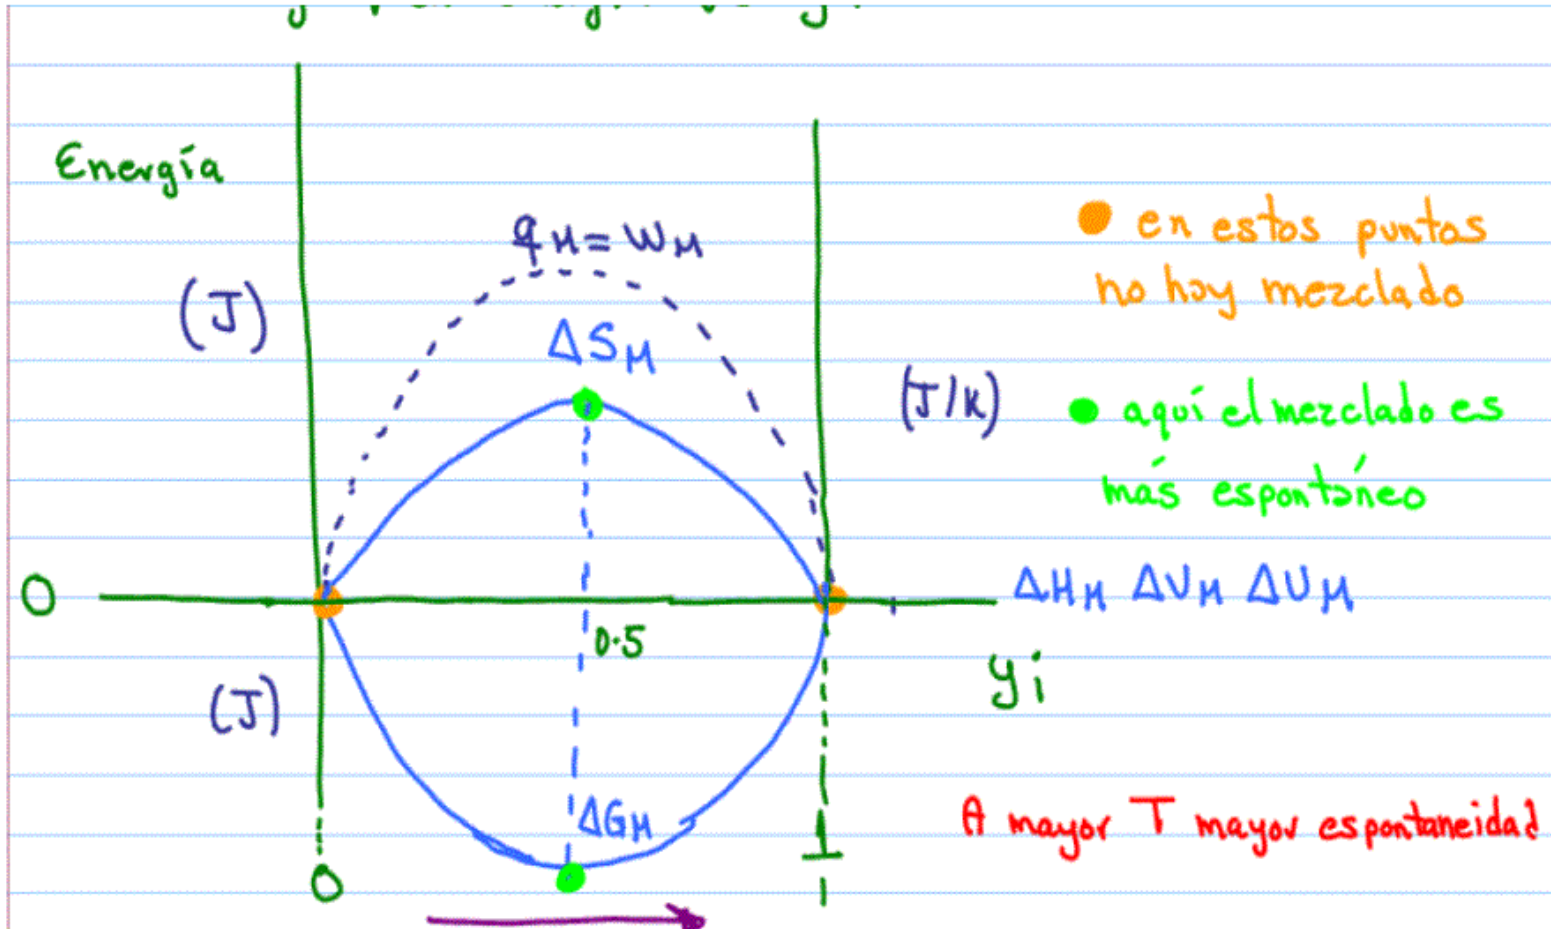 Energía
(J)
qM = WM
ΔSM
(J/K)
● en estos puntos
no hay mezclado
● aquí el mezclado es
más espontáneo
0
0.5
ΔHM ΔVM ΔUM
yi
(J)
ΔGM
A mayor T mayor espontaneidad
0
1